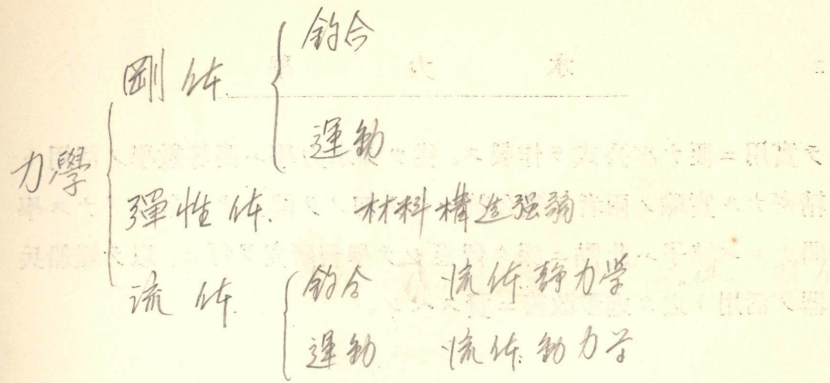 力學
剛体
釣合
運動
彈性体. 材料構造强弱
流体
釣合 流体静力学
運動 流体動力学